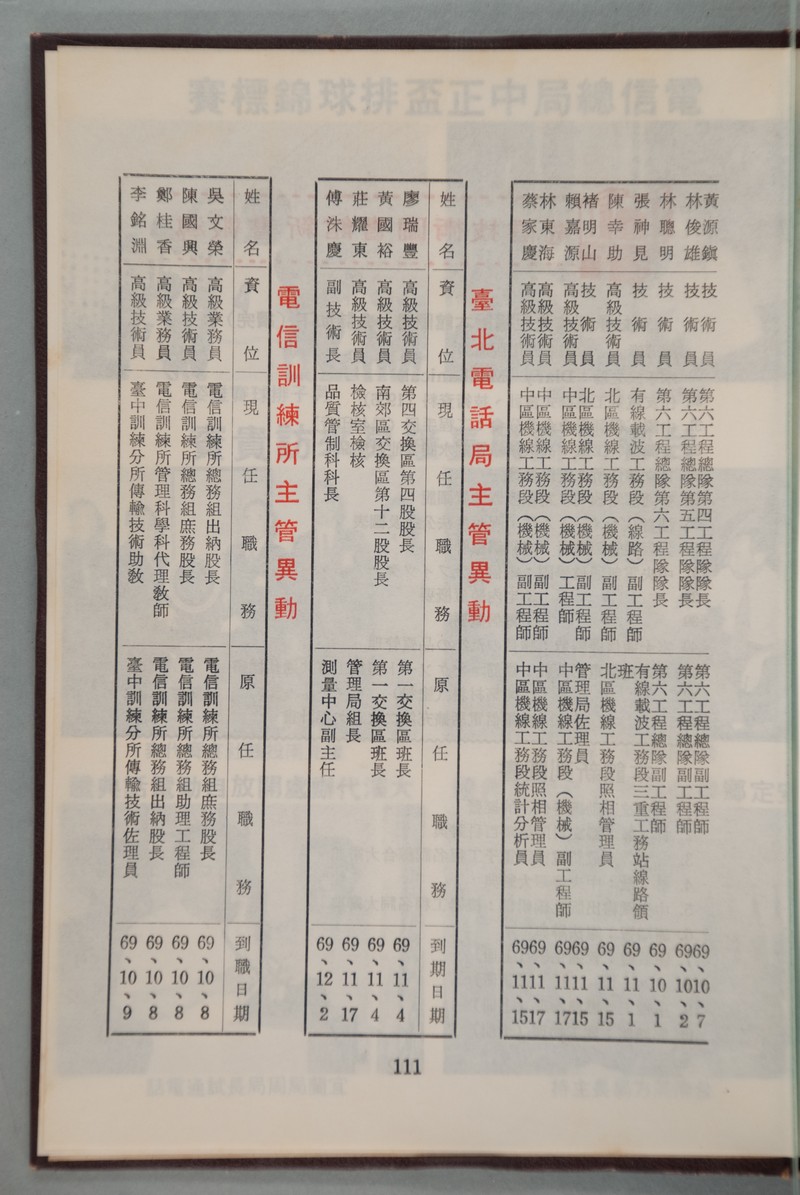 黃源鎮 技術員 第六工程總隊第四工程隊隊長 第六工程總隊副工程師 69、10、7
林俊雄 技術員 第六工程總隊第五工程隊隊長 第六工程總隊副工程師 69、10、2
林聰明 技術員 第六工程總隊第六工程隊隊長 第六工程總隊副工程師 69、10、1
張神見 技術員 有線載波工務段（線路）副工程師 有線載波工務段三重工務站線路領班 69、11、1
陳幸助 高級技術員 北區機線工務段（機械）副工程師 北區機線工務段照相管理員 69、11、15
褚明山 技術員 北區機線工務段（機械）副工程師 管理局佐理員 69、11、15
賴嘉源 高級技術員 中區機線工務段（機械）工程師 中區機線工務段（機械）副工程師 69、11、17
林東海 高級技術員 中區機線工務段（機械）副工程師 中區機線工務段照相管理員 69、11、17
蔡家慶 高級技術員 中區機線工務段（機械）副工程師 中區機線工務段統計分析員 69、11、15
臺北電話局主管異動
姓名 資位 現任職務 原任職務 到期日期
廖瑞豐 高級技術員 第四交換區第四股股長 第一交換區班長 69、11、4
黃國裕 高級技術員 南郊區交換區第十二股股長 第一交換區班長 69、11、4
莊耀東 高級技術員 檢核室檢核 管理局組長 69、11、17
傅洙慶 副技術長 品質管制科科長 測量中心副主任 69、12、2
電信訓練所主管異動
姓名 資位 現任職務 原任職務 到職日期
吳文榮 高級業務員 電信訓練所總務組出納股長 電信訓練所總務組庶務股長 69、10、8
陳國興 高級技術員 電信訓練所總務組庶務股長 電信訓練所總務組助理工程師 69、10、8
鄭桂香 高級業務員 電信訓練所管理科學科代理教師 電信訓練所總務組出納股長 69、10、8
李銘淵 高級技術員 臺中訓練分所傳輸技術助教 臺中訓練分所傳輸技術佐理員 69、10、9
111